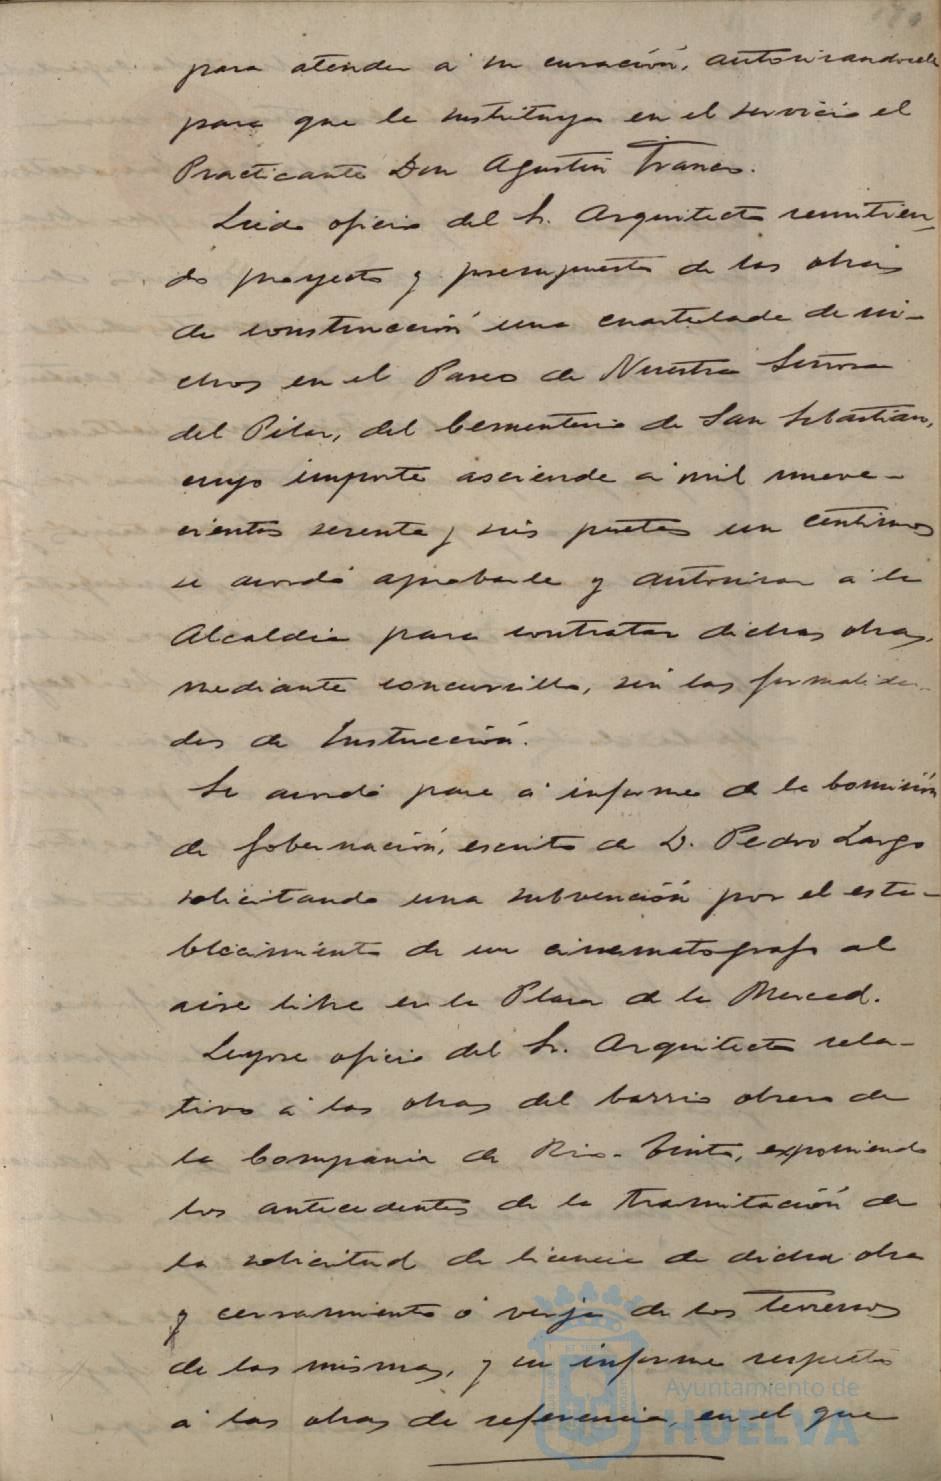 para atender a su curación, autorizandosele
para que le sustituya en el servicio el
Practicante Don Agustin Franco.
Leido oficio del Sr. Arquitecto remitien-
do proyecto y presupuesto de las obras
de construccion una cuartelada de ni-
chos en el Paseo de Nuestra Señora
del Pilar, del Cementerio de San Sebastian,
cuyo importe asciende a mil nueve-
cientas sesenta y seis pesetas un centimos
se acordó aprobarle y autorizar a la
Alcaldia para contratar dichas obras,
mediante concursillo, sin las formalida-
des de Instrucción.
Se acordó pase a informe de la Comisión
de Gobernación, escrito de D. Pedro Largo
solicitando una subvención por el esta-
blecimiento de un cinematografo al
aire libre en la Plaza de la Merced.
Leyose oficio del Sr. Arquitecto rela-
tivo a las obras del barrio obrero de
la Compania de Rio-Tinto, exponiendo
los antecedentes de la tramitación de
la solicitud de licencia de dicha obra
y cerramiento o verja de los terrenos
de las mismas, y su informe respecto
a las obras de referencia, en el que
Ayuntamiento de
HUELVA